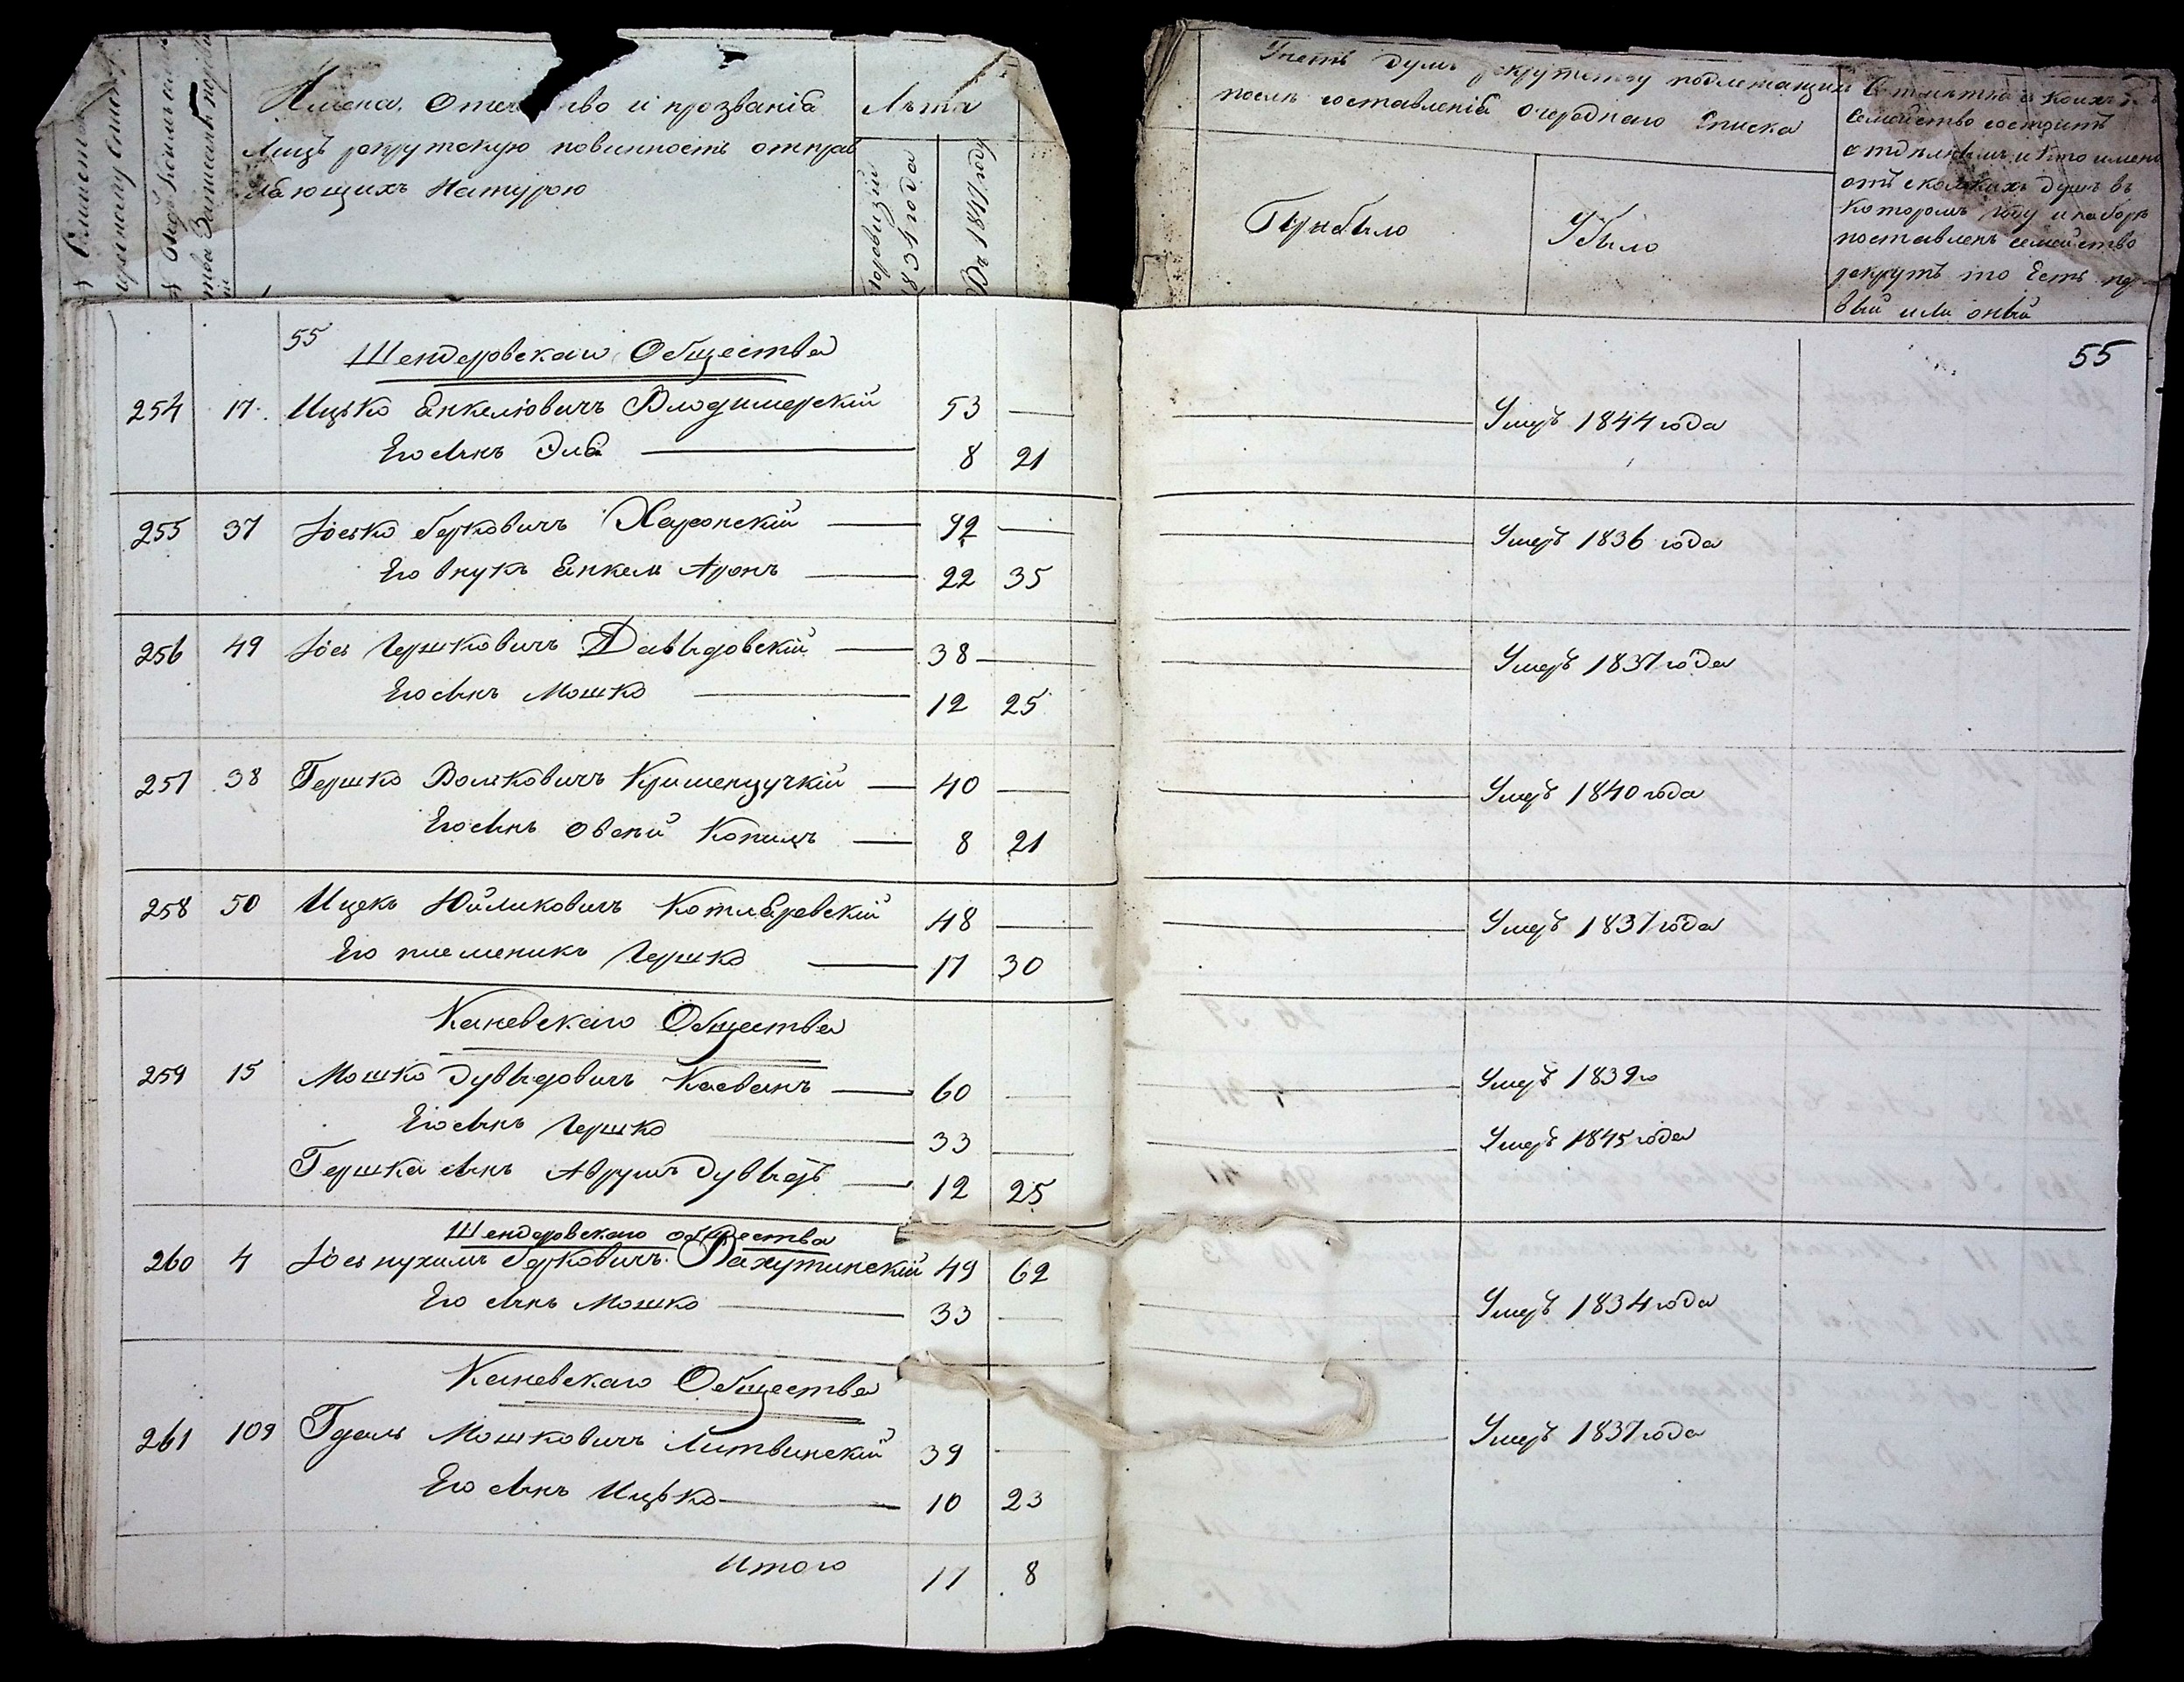 Имена, Отечество и прозванія
Лицъ рекрутскую повинность отправ
ляющихъ Натурою
Лѣта
1834 года
Въ 1847 году
Учетъ Душъ рекрутству подлежащихъ
послѣ составленія очереднаго Списка
Прибыло
Убыло
семейство состоитъ
отъ сколькихъ душъ въ
которомъ году и наборѣ
поставленъ семейство
рекрутъ то Есть пер
вый или оный
55
55
Шендеровскаго Общества
254 17. Ицько Янкелювичъ Владимерскій 53 — Умеръ 1844 года
Его сынъ Эля 8 21
255 37 Іосько Берковичъ Харонскій 92 — Умеръ 1836 года
Его внукъ Янкель Аронъ 22 35
256 49 Іось Гершковичъ Давыдовскій 38 — Умеръ 1837 года
Его сынъ Мошко 12 25
257 38 Гершко Волковичъ Кришенчучкій 40 — Умеръ 1840 года
Его сынъ Овсѣй Копиль 8 21
258 50 Ицекъ Юйликовичъ Котляревскій 48 — Умеръ 1837 года
Его племеникъ Гершко 17 30
Каневскаго Общества
259 15 Мошко Дувыдовичъ Каеванъ 60 — Умеръ 1839 го
Его сынъ Гершко 33 — Умеръ 1845 года
Гершка сынъ Аврумъ Дувыдъ 12 25
Шендеровскаго общества
260 4 Іось нухимъ Берковичъ Рахутинскій 49 62
Его сынъ Мошко 33 — Умеръ 1834 года
Каневскаго Общества
261 109 Гдаль Мошковичъ Литвинскій 39 — Умеръ 1837 года
Его сынъ Ицько 10 23
Итого 17 8